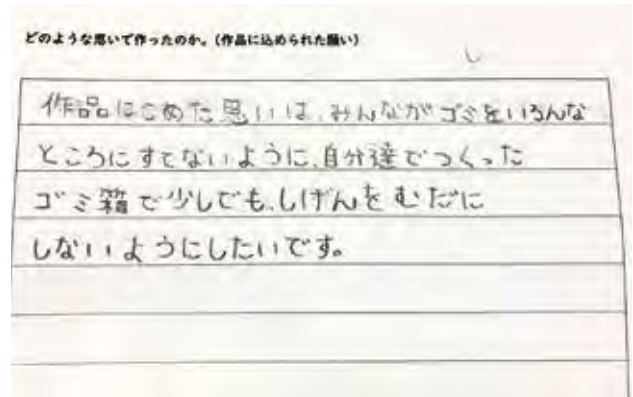 どのような思いで作ったのか。(作品に込められた願い)
作品にこめた思いは、みんながゴミをいろんな
ところにすてないように、自分達でつくった
ゴミ箱で少しでも、しげんをむだに
しないようにしたいです。